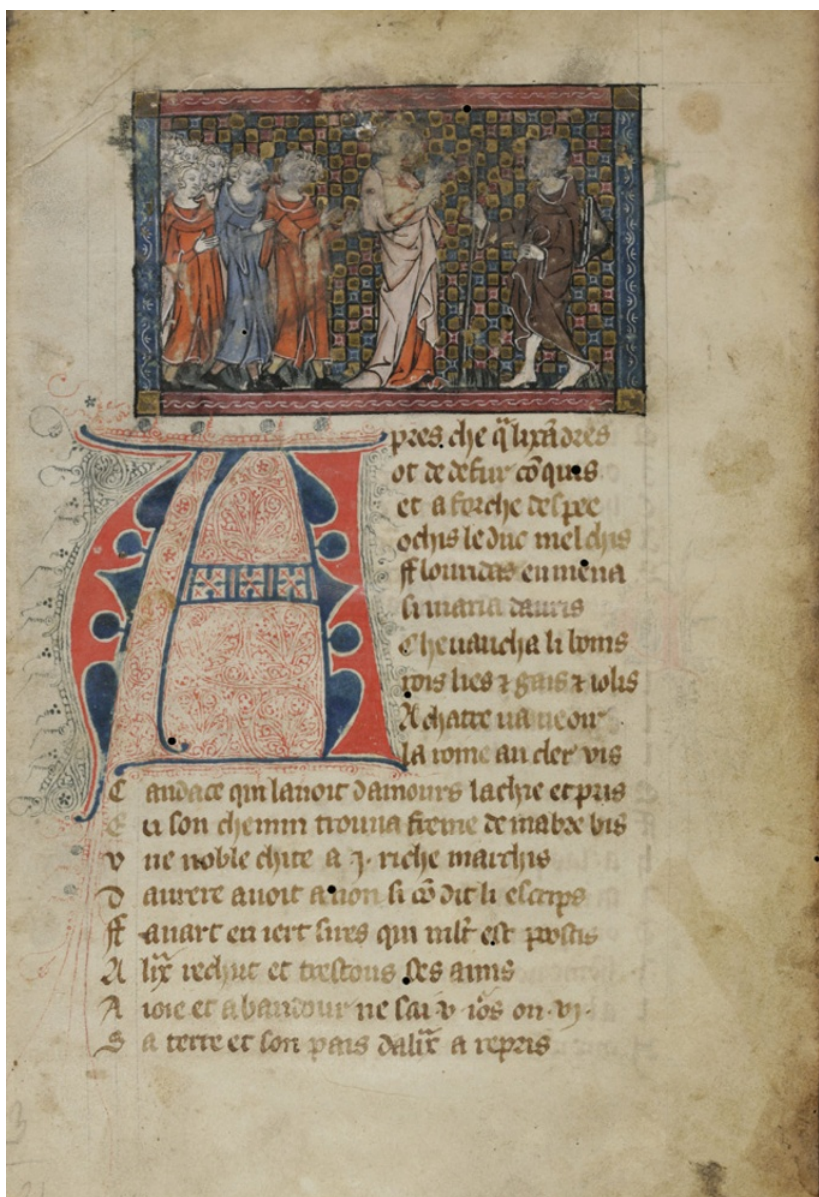 Apres che q̃ lixãdres
ot de defur cõquis
et a forche despee
ochis le duc melchis
fflouridas en mena
si maria dauris
Cheuaucha li boins
rois lies ⁊ gais ⁊ iolis
A chatre ua ueoir
la rome au cler vis
Candace qui lauoit damours lachie et pris
En son chemin trouua fremе de mabre bis
vne noble chite a .j. riche marchis
Daurere auoit a non si cõ dit li escrips
ffauart en iert sires qui mlt̃ est postis
Alix̃ rechut et trestous ses amis
A ioie et a bandour ne sai .v. iõs ou .vj.
Sa terre et son pais dalix̃ a repris